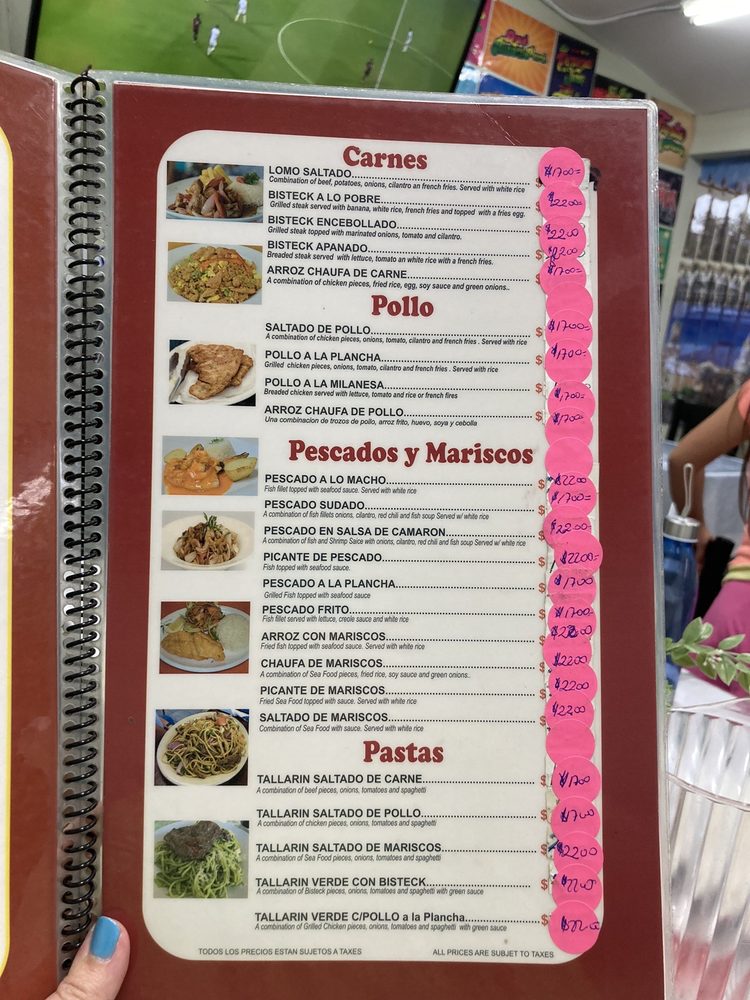 Carnes
LOMO SALTADO.......... $1700=
Combination of beef, potatoes, onions, cilantro an french fries. Served with white rice
BISTECK A LO POBRE.......... $2200=
Grilled steak served with banana, white rice, french fries and topped with a fries egg.
BISTECK ENCEBOLLADO.......... $2200
Grilled steak topped with marinated onions, tomato and cilantro.
BISTECK APANADO.......... $2200
Breaded steak served with lettuce, tomato an white rice with a french fries.
ARROZ CHAUFA DE CARNE.......... $1700=
A combination of chicken pieces, fried rice, egg, soy sauce and green onions..
Pollo
SALTADO DE POLLO.......... $1700=
A combination of chicken pieces, onions, tomato, cilantro and french fries . Served with rice
POLLO A LA PLANCHA.......... $1700=
Grilled chicken pieces, onions, tomato, cilantro and french fries . Served with rice
POLLO A LA MILANESA.......... $1700=
Breaded chicken served with lettuce, tomato and rice or french fires
ARROZ CHAUFA DE POLLO.......... $1700=
Una combinacion de trozos de pollo, arroz frito, huevo, soya y cebolla
Pescados y Mariscos
PESCADO A LO MACHO.......... $2200
Fish fillet topped with seafood sauce. Served with white rice
PESCADO SUDADO.......... $1700=
A combination of fish fillets onions, cilantro, red chili and fish soup Served w/ white rice
PESCADO EN SALSA DE CAMARON.......... $2200=
A combination of fish and Shrimp Saice with onions, cilantro, red chili and fish soup Served w/ white rice
PICANTE DE PESCADO.......... $2200=
Fish topped with seafood sauce.
PESCADO A LA PLANCHA.......... $1700
Grilled Fish topped with seafood sauce
PESCADO FRITO.......... $1700=
Fish fillet served with lettuce, creole sauce and white rice
ARROZ CON MARISCOS.......... $2200
Fried fish topped with seafood sauce. Served with white rice
CHAUFA DE MARISCOS.......... $2200
A combination of Sea Food pieces, fried rice, soy sauce and green onions..
PICANTE DE MARISCOS.......... $2200
Fried Sea Food topped with sauce. Served with white rice
SALTADO DE MARISCOS.......... $2200
Combination of Sea Food with sauce. Served with white rice
Pastas
TALLARIN SALTADO DE CARNE.......... $1700
A combination of beef pieces, onions, tomatoes and spaghetti
TALLARIN SALTADO DE POLLO.......... $1700
A combination of chicken pieces, onions, tomatoes and spaghetti
TALLARIN SALTADO DE MARISCOS.......... $2200
A combination of Sea Food pieces, onions, tomatoes and spaghetti
TALLARIN VERDE CON BISTECK.......... $2200
A combination of Bisteck pieces, onions, tomatoes and spaghetti with green sauce
TALLARIN VERDE C/POLLO a la Plancha.......... $
A combination of Grilled Chicken pieces, onions, tomatoes and spaghetti with green sauce
TODOS LOS PRECIOS ESTAN SUJETOS A TAXES
ALL PRICES ARE SUBJET TO TAXES